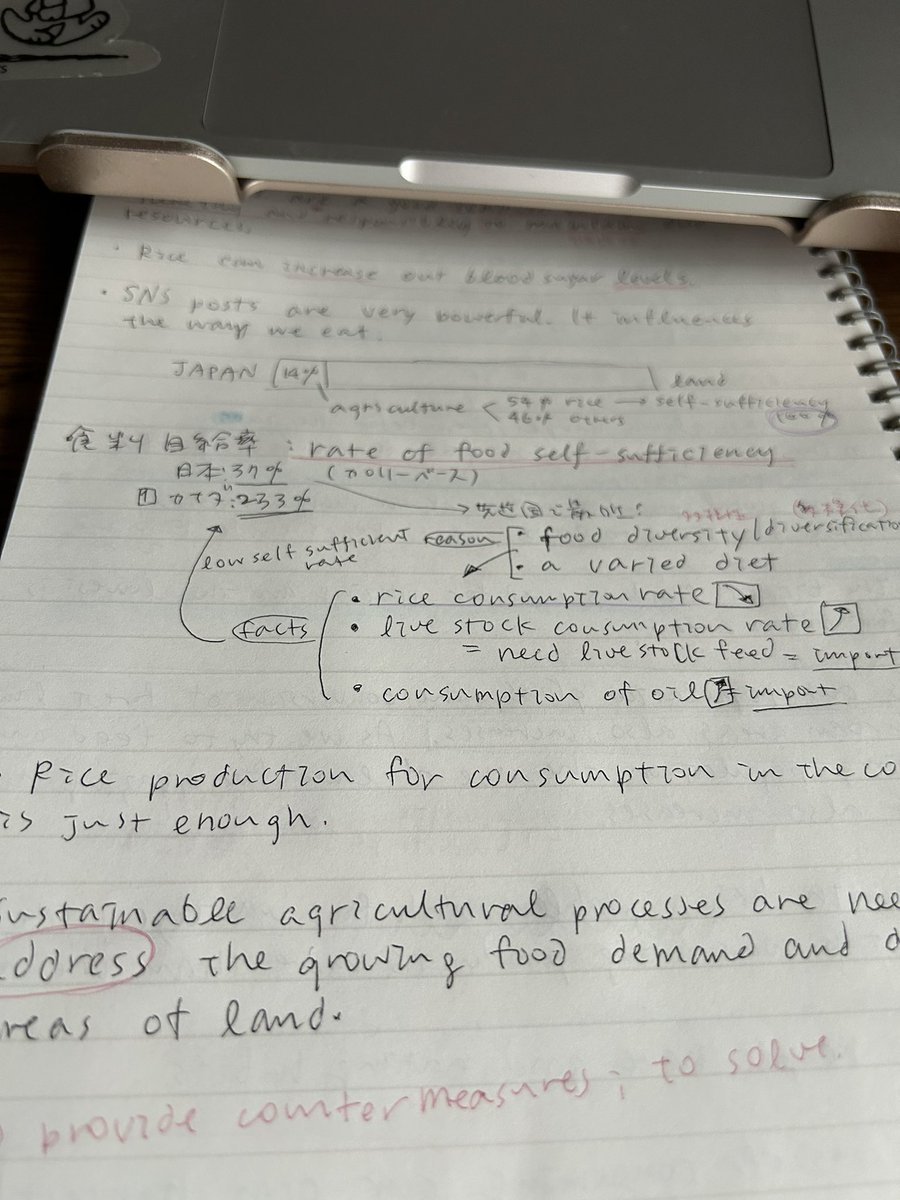 resources,
· Rice can increase our blood sugar levels.
· SNS posts are very powerful. It influences
the way we eat.
JAPAN 14% land
agriculture < 54% rice → self-sufficiency
46% others
食料自給率 : rate of food self-sufficiency
日本:37% (カロリーベース)
カナダ:233%
→先進国で最低!
low self sufficient
rate
reason
· food diversity/diversification
· a varied diet
facts
· rice consumption rate ↘
· live stock consumption rate ↗
= need live stock feed = import
· consumption of oil ↗ import
· Rice production for consumption in the co
is just enough.
sustainable agricultural processes are nee
address the growing food demand and d
reas of land.
provide countermeasures; to solve.